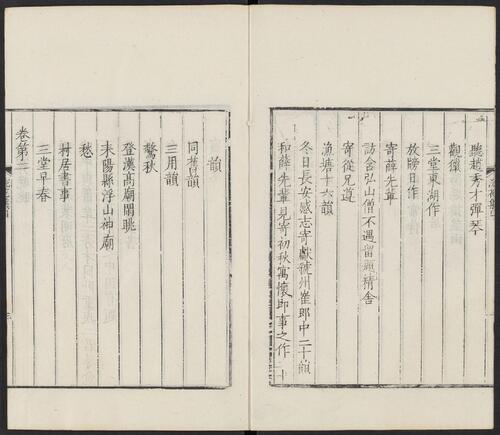 聽趙秀才彈琴
觀獵
三堂東湖作
放牓日作
寄薛先輩
訪含弘山僧不遇留題精舍
寄從兄遵
漁塘十六韻
冬日長安感志寄獻虢州崔郎中二十韻
和薛先輩見寄初秋寓懷即事之作二十
韻
同舊韻
三用韻
驚秋
登漢高廟閑眺
耒陽縣浮山神廟
愁
村居書事
卷第二
三堂早春